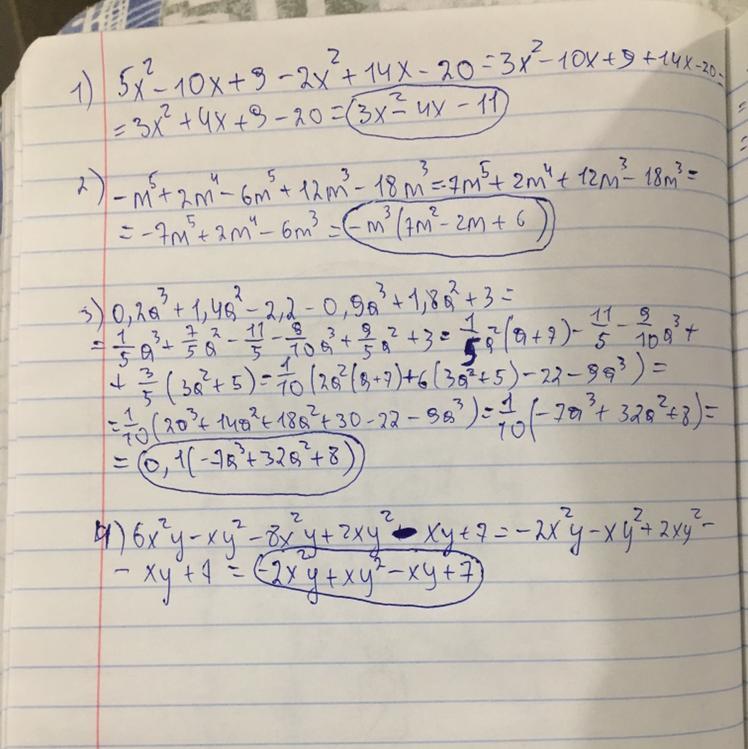 1) 5x² - 10x + 9 - 2x² + 14x - 20 = 3x² - 10x + 9 + 14x - 20 =
= 3x² + 4x + 9 - 20 = 3x² - 4x - 11
2) -m⁵ + 2m⁴ - 6m⁵ + 12m³ - 18m³ = -7m⁵ + 2m⁴ + 12m³ - 18m³ =
= -7m⁵ + 2m⁴ - 6m³ = -m³(7m² - 2m + 6)
3) 0,2a³ + 1,4a² - 2,2 - 0,9a³ + 1,8a² + 3 =
= 1/5 a³ + 7/5 a² - 11/5 - 9/10 a³ + 9/5 a² + 3 = 1/5 a²(a + 7) - 11/5 - 9/10 a³ +
+ 3/5 (3a² + 5) = 1/10 (2a²(a + 7) + 6(3a² + 5) - 22 - 9a³) =
= 1/10 (2a³ + 14a² + 18a² + 30 - 22 - 9a³) = 1/10 (-7a³ + 32a² + 8) =
= 0,1(-7a³ + 32a² + 8)
4) 6x²y - xy² - 8x²y + 2xy² - xy + 7 = -2x²y - xy² + 2xy² -
- xy + 7 = -2x²y + xy² - xy + 7